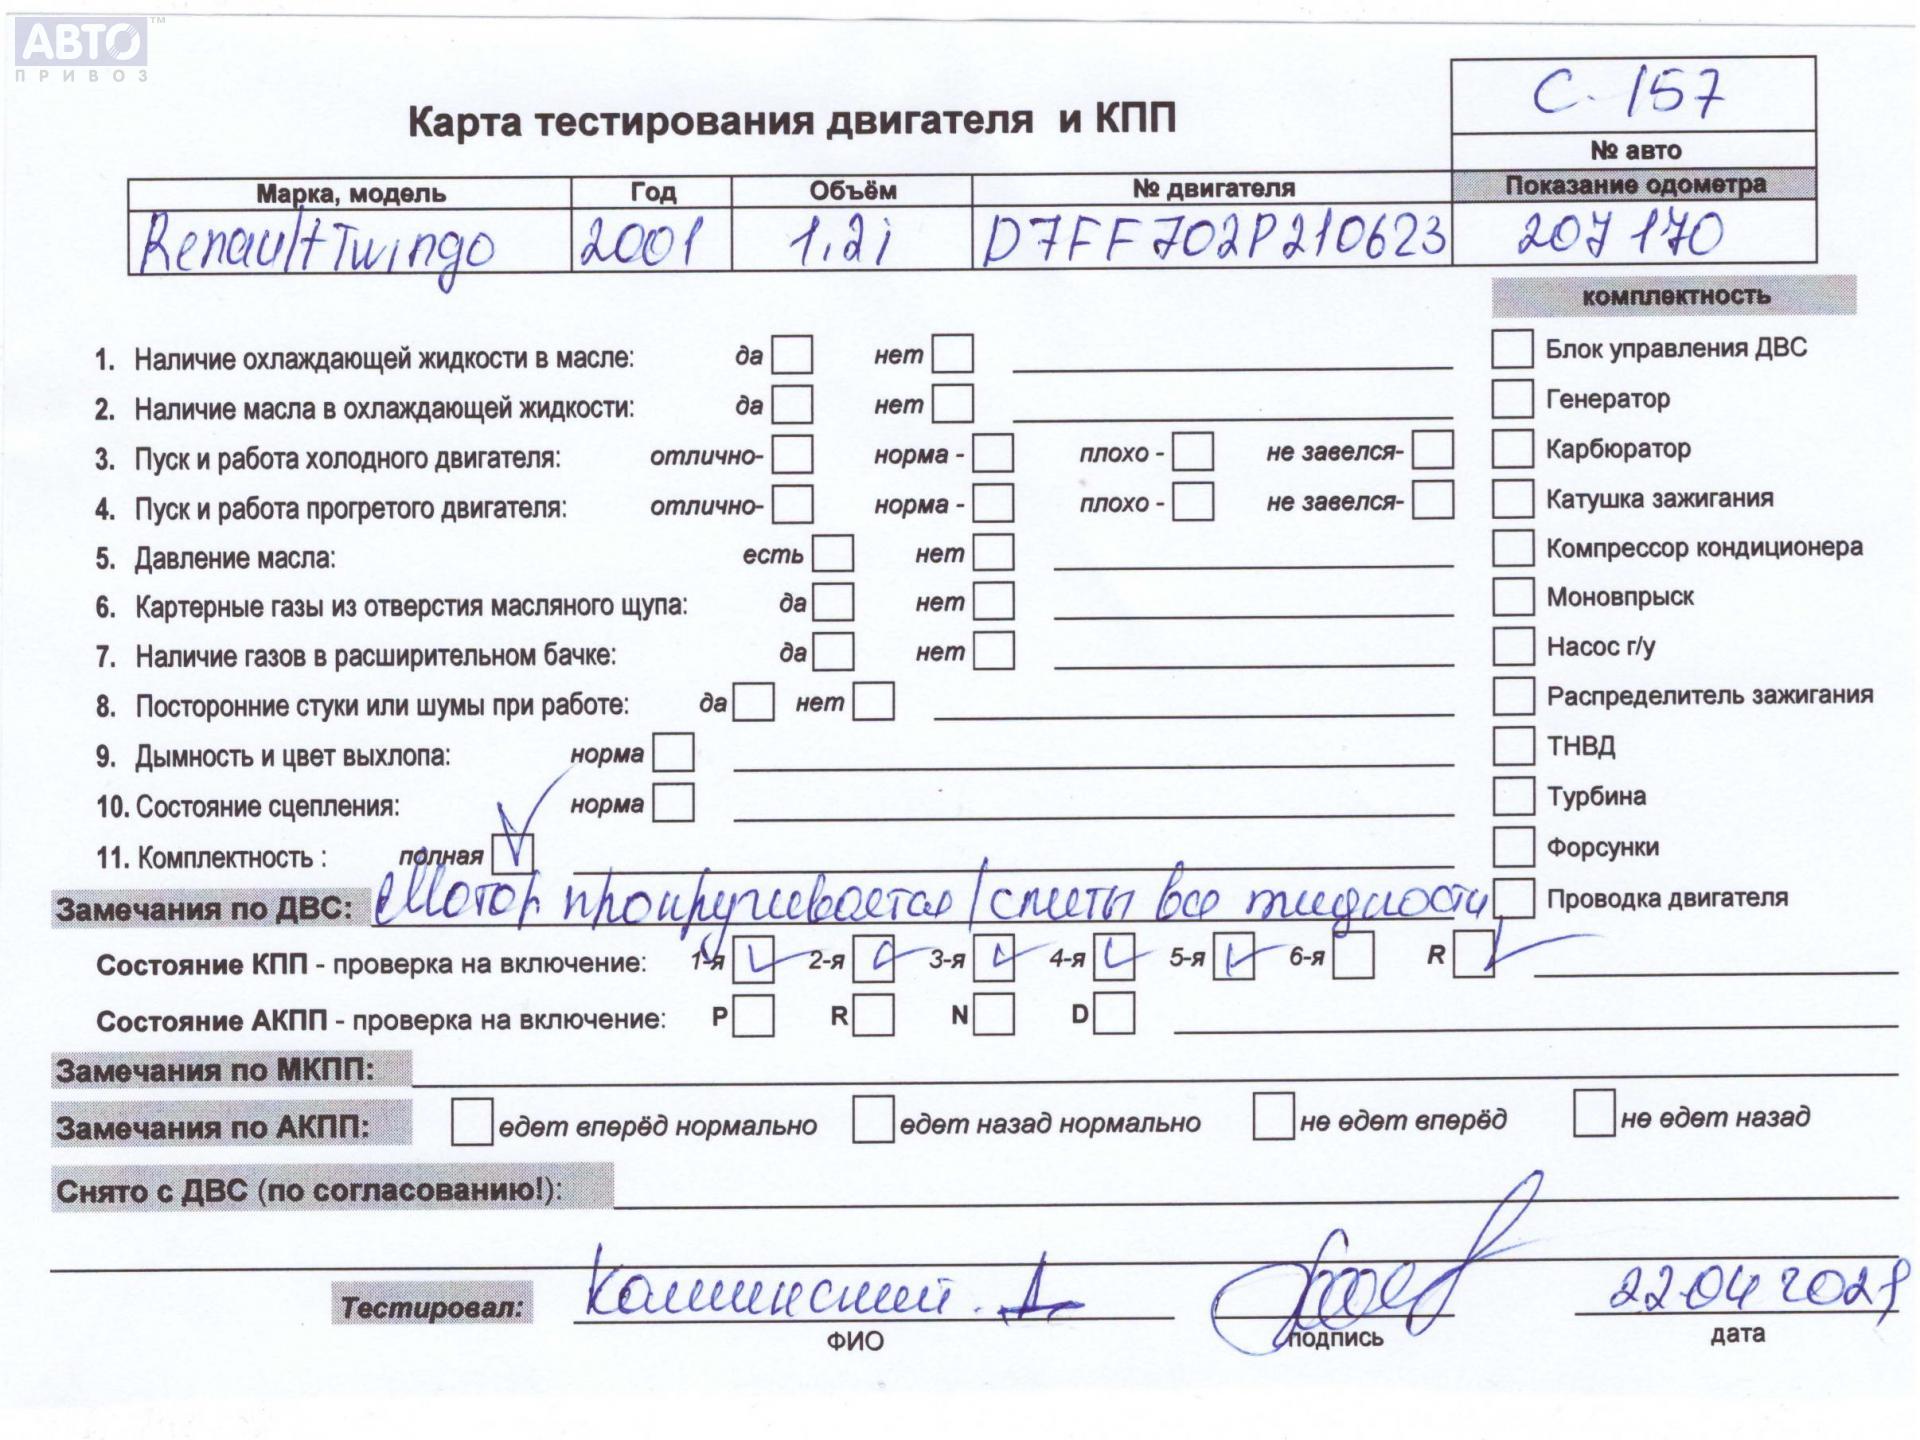 АВТО™
ПРИВОЗ
С-157
Карта тестирования двигателя и КПП
№ авто
Марка, модель Год Объём № двигателя Показание одометра
Renault Twingo 2001 1,2i D7FF702P210623 207170
комплектность
1. Наличие охлаждающей жидкости в масле: да нет Блок управления ДВС
2. Наличие масла в охлаждающей жидкости: да нет Генератор
3. Пуск и работа холодного двигателя: отлично- норма - плохо - не завелся- Карбюратор
4. Пуск и работа прогретого двигателя: отлично- норма - плохо - не завелся- Катушка зажигания
5. Давление масла: есть нет Компрессор кондиционера
6. Картерные газы из отверстия масляного щупа: да нет Моновпрыск
7. Наличие газов в расширительном бачке: да нет Насос г/у
8. Посторонние стуки или шумы при работе: да нет Распределитель зажигания
9. Дымность и цвет выхлопа: норма ТНВД
10. Состояние сцепления: норма Турбина
11. Комплектность : полная Форсунки
Замечания по ДВС: Мотор прокручивается/слиты все жидкости Проводка двигателя
Состояние КПП - проверка на включение: 1-я 2-я 3-я 4-я 5-я 6-я R
Состояние АКПП - проверка на включение: P R N D
Замечания по МКПП:
Замечания по АКПП: едет вперёд нормально едет назад нормально не едет вперёд не едет назад
Снято с ДВС (по согласованию!):
Тестировал: 22.04
ФИО подпись дата